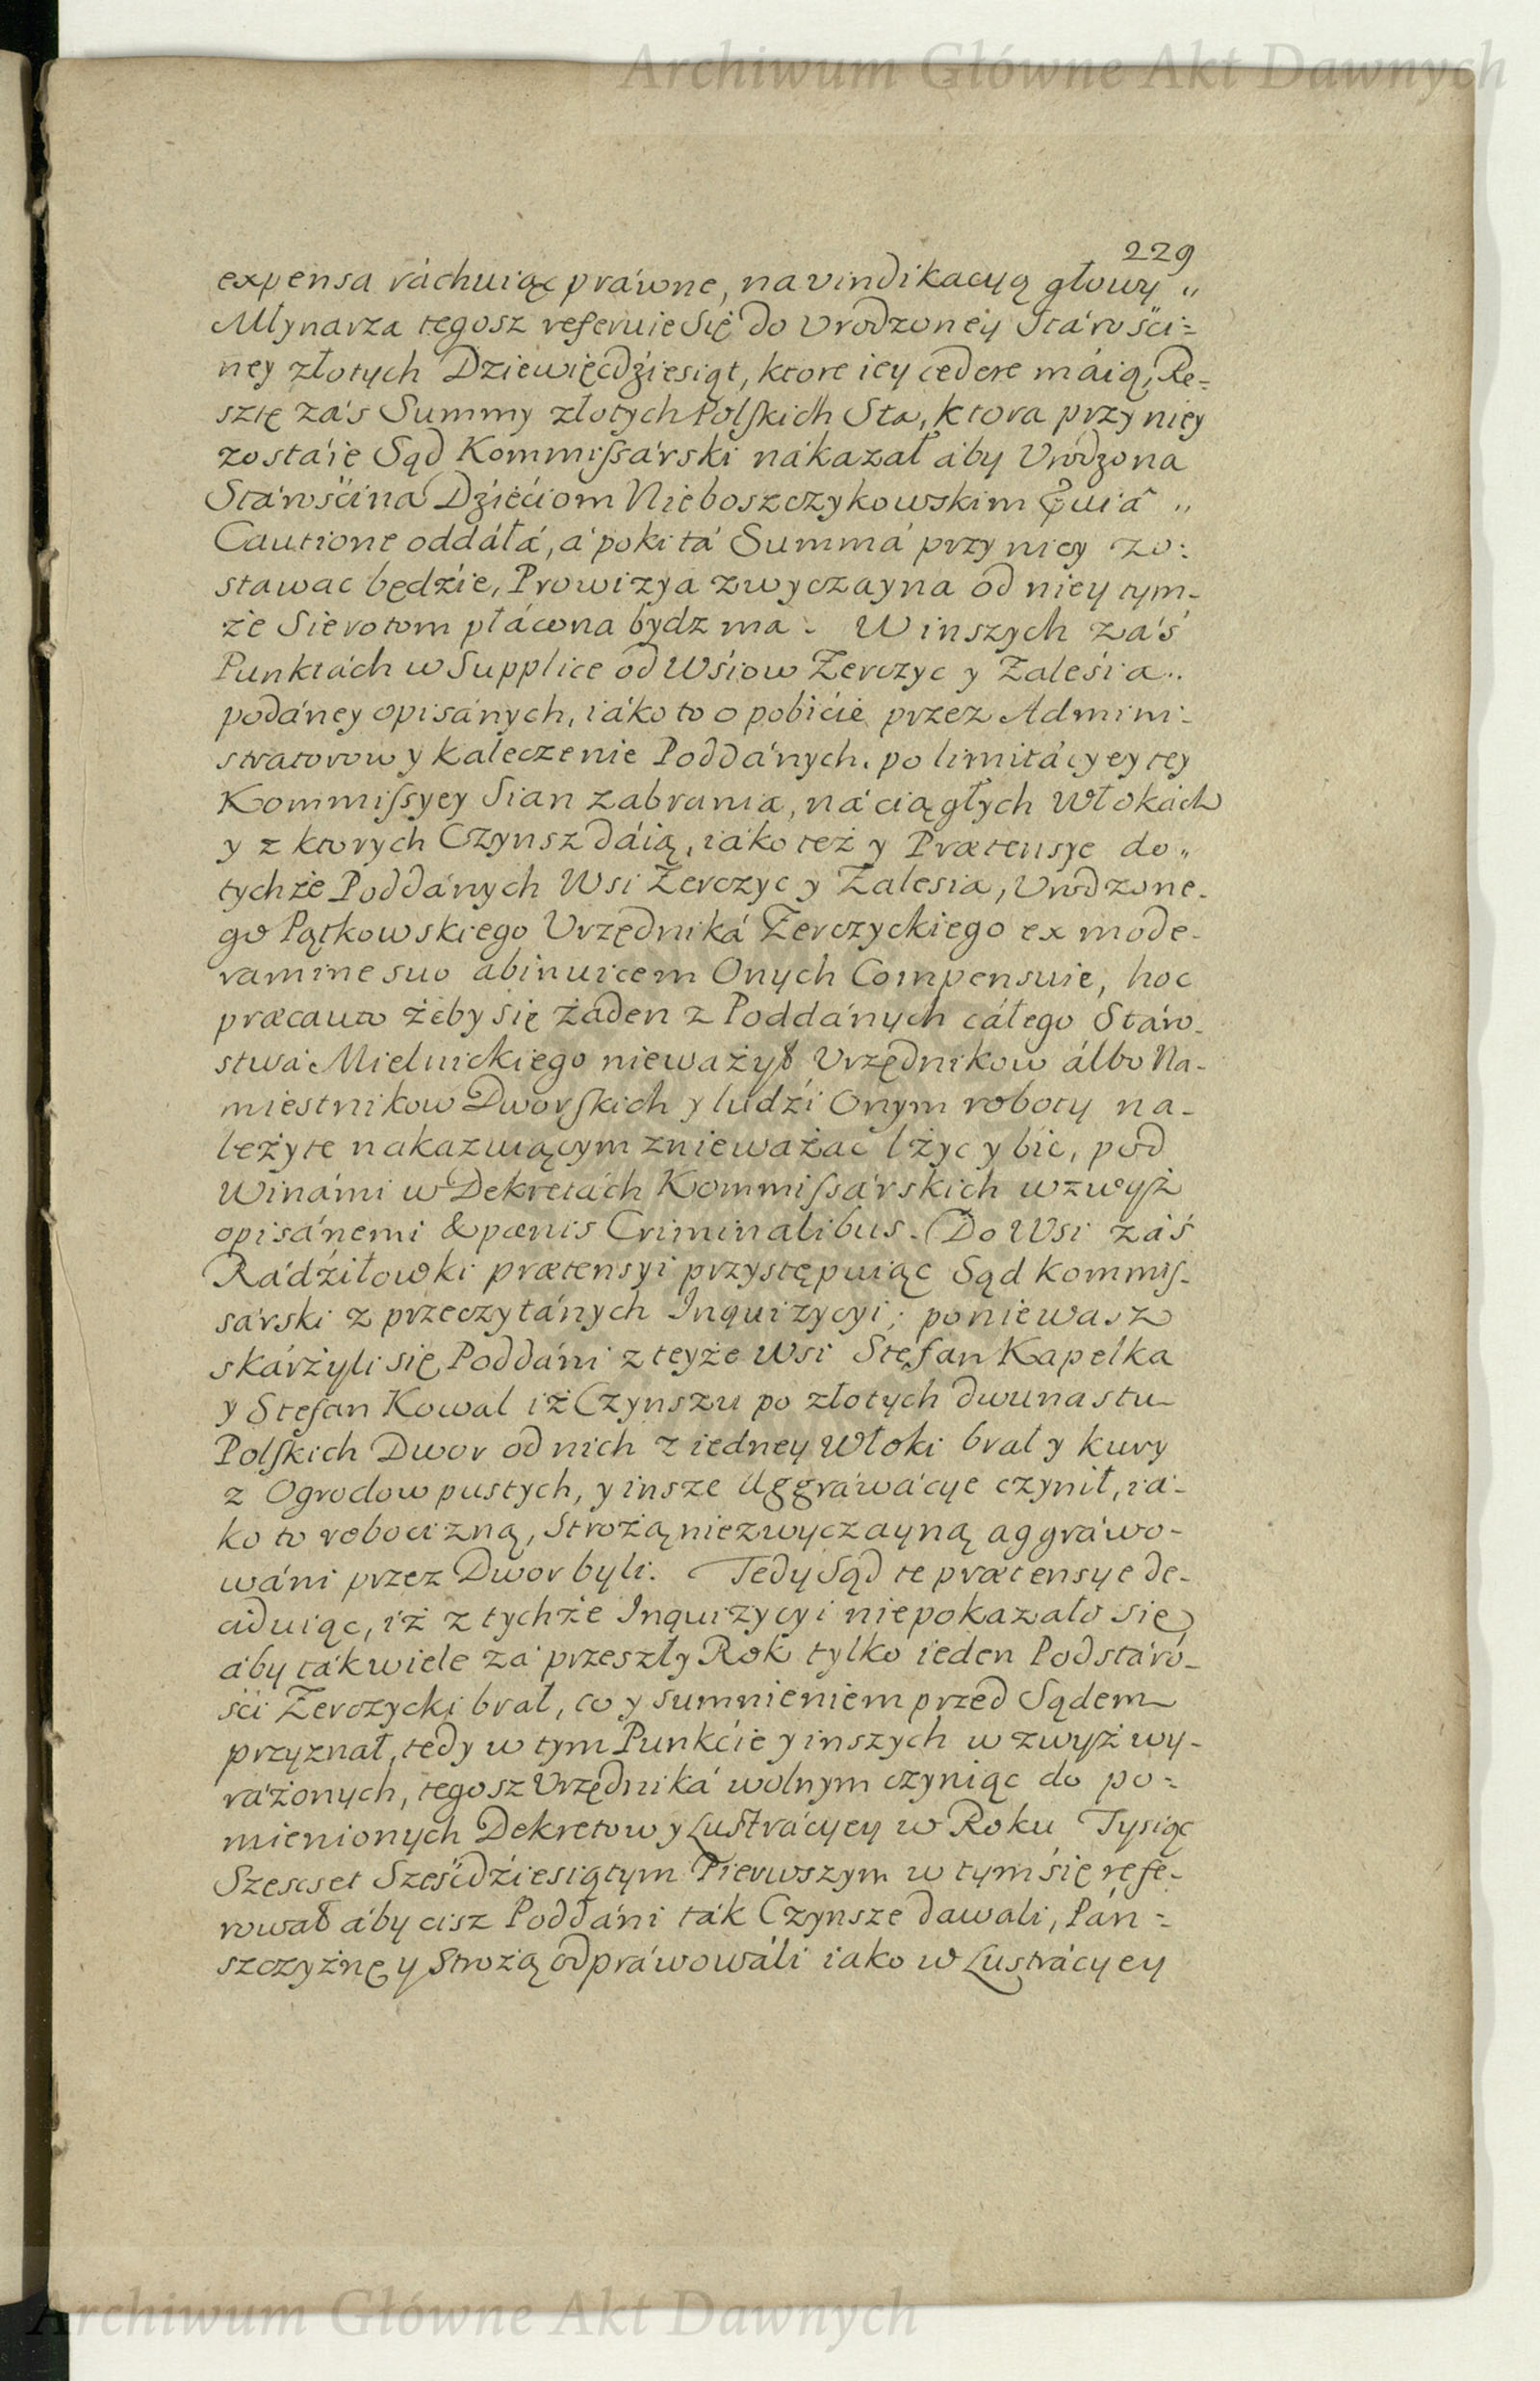 Archiwum Główne Akt Dawnych
229
expensa ráchuiąc práwne, na vindikacyą głowy „
Młynarza tegosz referuie się do Vrodzoney Stárości=
ney złotych Dziewięćdźiesiąt, ktore iey cedere máią, Re=
sztę zás Summy złotych Polskich Sta, ktora przy niey
zostáie Sąd Kommissárski nákazał áby Vrodzona
Stárośćina Dźiećiom Nieboszczykowskim Quiâ „
Cautione oddáłá, á poki tá Summá przy niey zo:
stawac będzie, Prowizya zwyczayna od niey tym-
że Sierotom płácona bydz ma. W inszych záś
Punktách w Supplice od Wśiow Zerczyc y Zaleśia..
podáney opisánych, iáko to o pobićie przez Admini-
stratorow y kaleczenie Poddánych, po limitácyey tey
Kommissyey Sian zabrania, ná ciągłych Włokách
y z ktorych Czynsz dáią, iáko też y Prætensye do„
tychże Poddánych Wsi Zerczyc y Zalesia, Vrodzone-
go Pątkowskiego Vrzędniká Zerczyckiego ex mode-
ramine suo abinuicem Onych Compensuie, hoc
præcauto żeby się żaden z Poddánych cáłego Stáro-
stwá Mielnickiego nieważył Vrzędnikow álbo Na-
miestnikow Dworskich y ludźi Onym roboty na-
leżyte nakazuiącym znieważać lżyc y bic, pod
Winámi w Dekretách Kommissárskich wzwyż
opisánemi & pœnis Criminalibus. Do Wsi záś
Rádźiłowki prætensyi przystępuiąc Sąd Kommis-
sárski z przeczytánych Inquizycyi; poniewasz
skárżyli się Poddáni z teyże Wsi Stefan Kapelka
y Stefan Kowal iż Czynszu po złotych dwunastu
Polskich Dwor od nich z iedney Włoki brał y kury
z Ogrodow pustych, y insze Aggráwácye czynił, iá-
ko to robocizną, Strożą niezwyczayną aggráwo-
wáni przez Dwor byli. Tedy Sąd te prætensye de-
ciduiąc, iż z tychże Inquizycyi niepokazało się
áby ták wiele zá przeszły Rok tylko ieden Podstáro-
ści Zerczycki brał, co y sumnieniem przed Sądem
przyznał, tedy w tym Punkćie y inszych w zwyż wy-
ráżonych, tegosz Vrzędniká wolnym czyniąc do po=
mienionych Dekretow y Lustrácyey w Roku Tysiąc
Szescset Sześćdźiesiątym Pierwszym w tym się refe-
rował áby cisz Poddáni ták Czynsze dawali, Pán=
szczyznę y Strożą odpráwowáli iako w Lustrácyey
Archiwum Główne Akt Dawnych